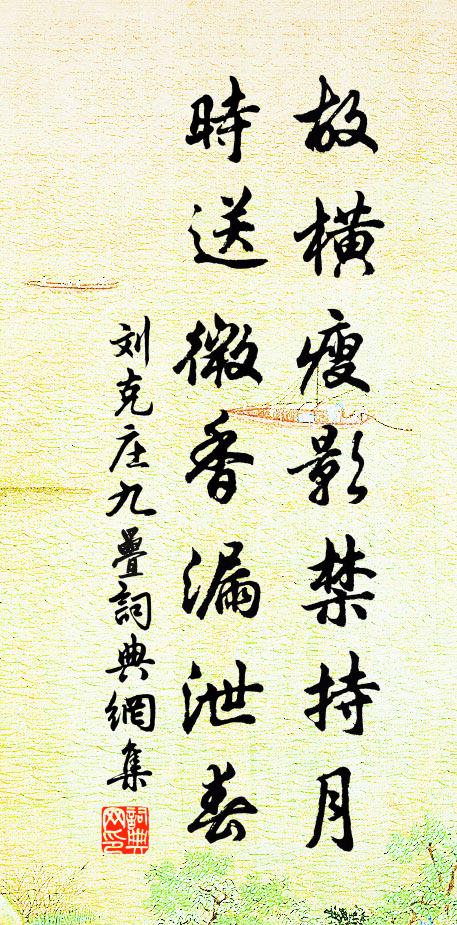 故橫瘦影禁持月
時送微香漏泄春
刘克庄九疊詞典網集
詞典
网印